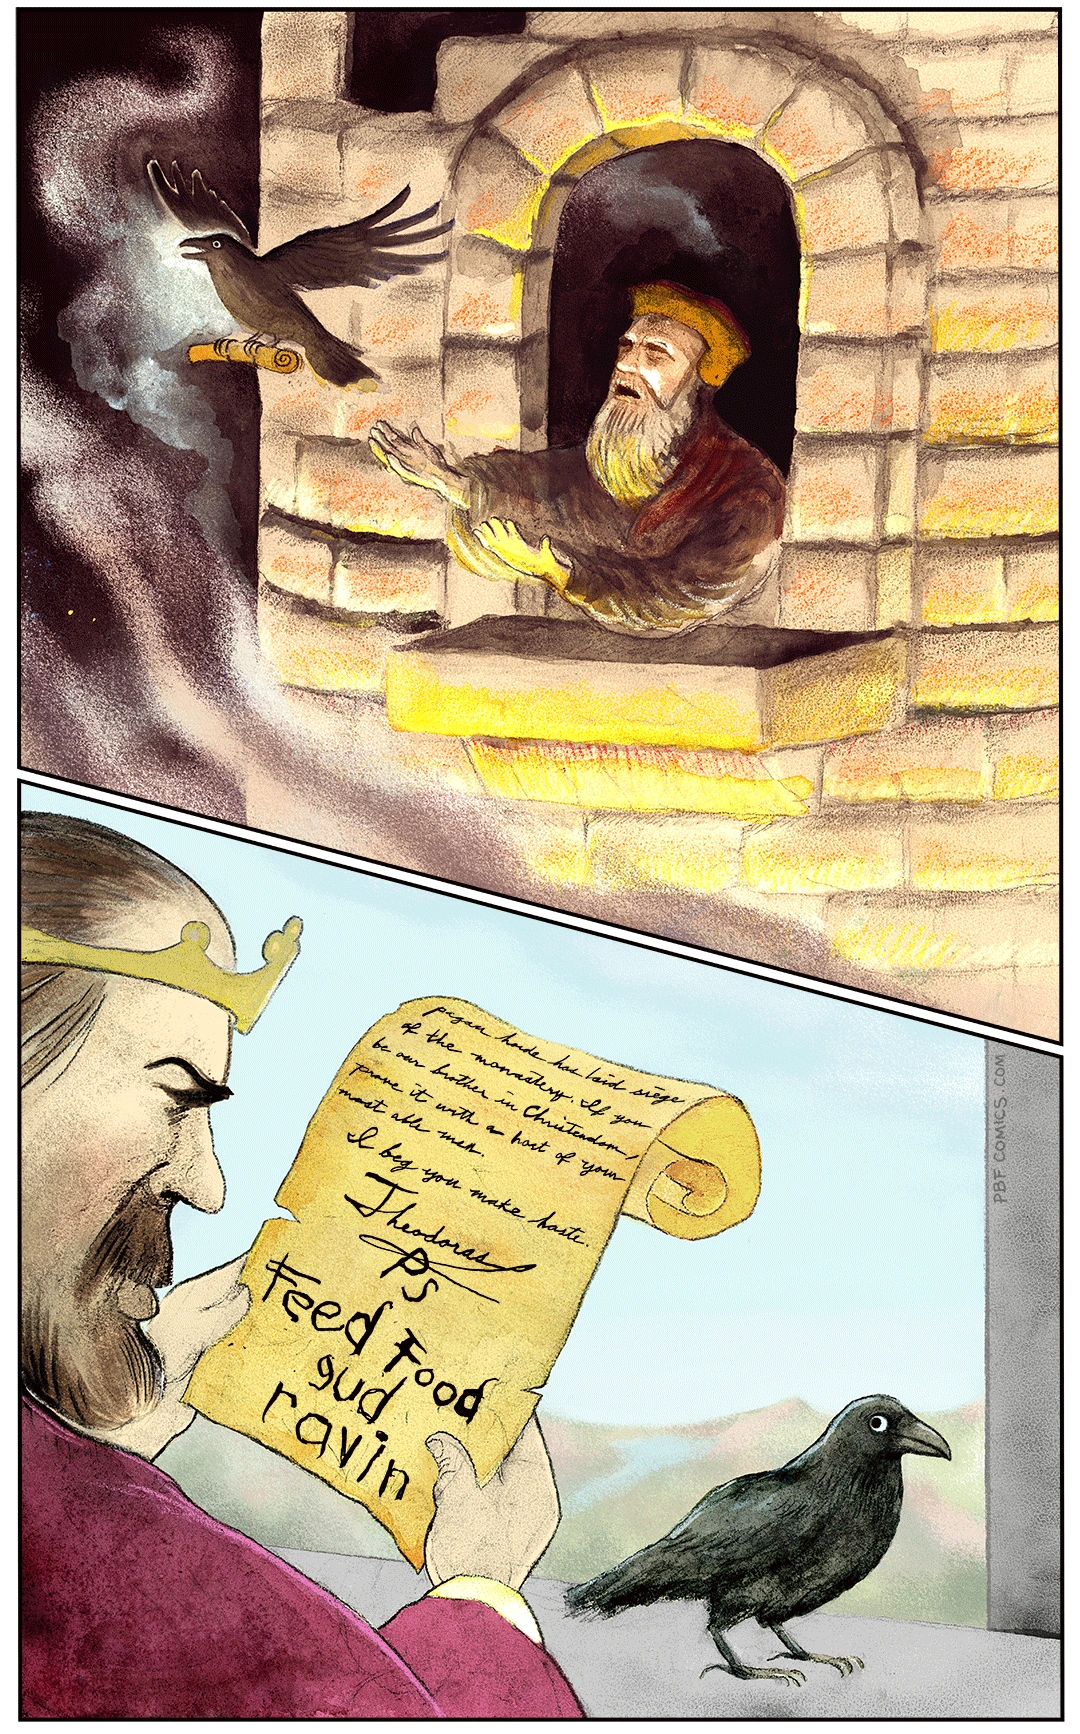 pagan horde has laid siege
of the monastery. If you
be our brother in Christendom,
prove it with a host of your
most able men.
I beg you make haste.
Theodoras
PS
Feed Food
gud
ravin
PBF COMICS.COM